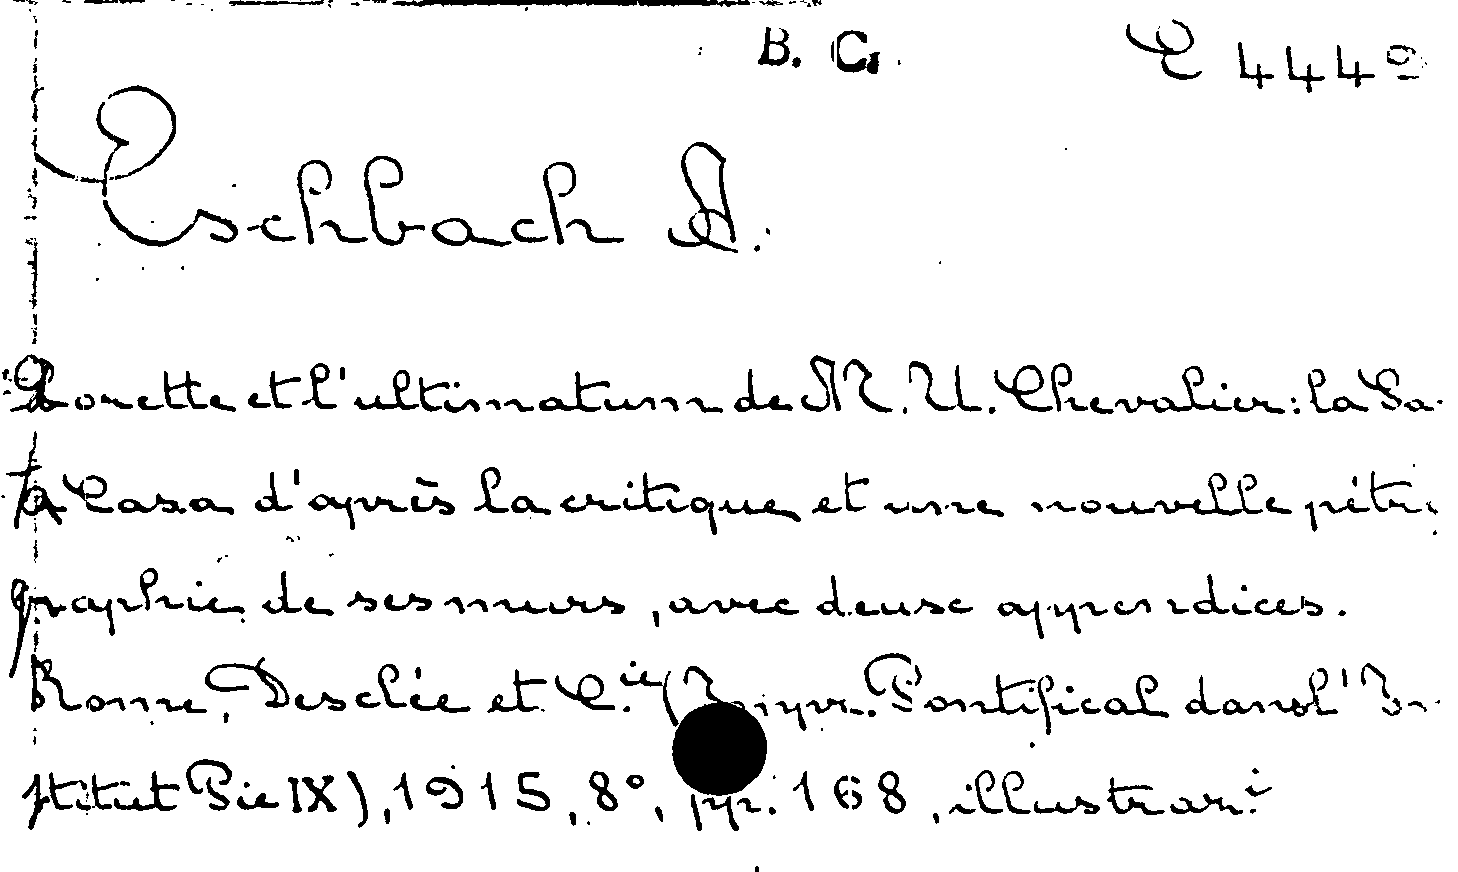 B. C. E 444º
Eschbach A.
Lorette et l'ultimatum de M. U. Chevalier: la Sa-
ta Casa d'après la critique et une nouvelle pétro
graphie de ses murs, avec deuse appendices.
Rome, Desclée et C.ie (Impr. Pontifical dans l'In-
stitut Pie IX), 1915, 8º, pp. 168, illustrar.i